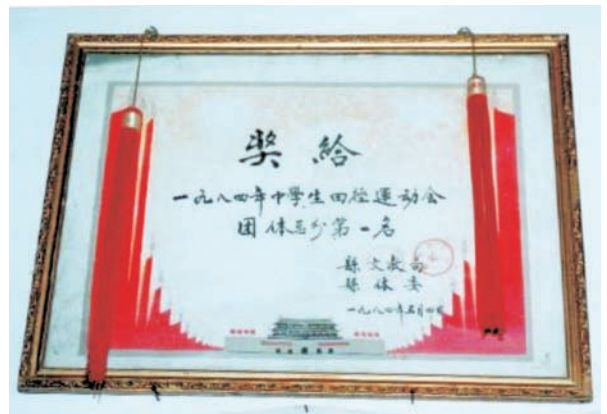 奖给
一九八四年中學生田径運动会
团体总分第一名
縣文教局
縣体委
一九八四年五月四日